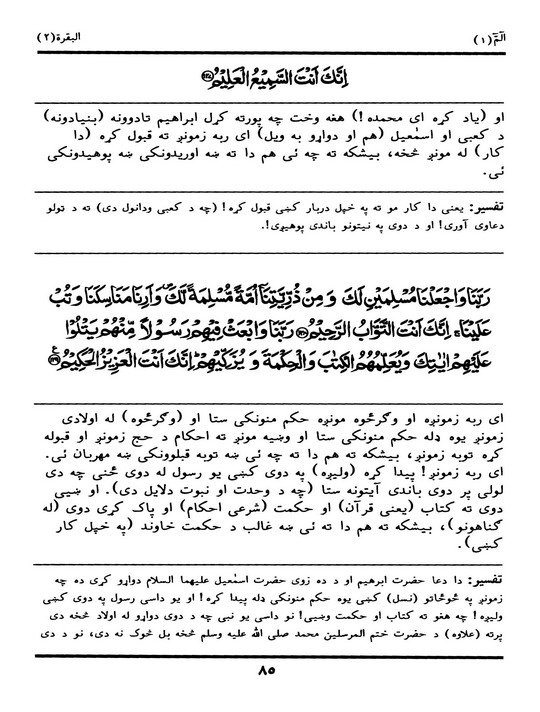 الٓمّٓ (١)
البقرة (٢)
اِنَّكَ اَنْتَ السَّمِيْعُ الْعَلِيْمُ ﴿١٢٧﴾
او (یاد کړه ای محمده!) هغه وخت چه پورته کړل ابراهیم تادوونه (بنیادونه)
د کعبی او اسمٰعیل (هم او دواړو به ویل) ای ربه زمونږ ته قبول کړه (دا
کار) له مونږ څخه، بیشکه ته چه ئی هم دا ته ښه اوریدونکی ښه پوهیدونکی
ئی.
تفسیر: یعنی دا کار مو ته په خپل دربار کښی قبول کړه! (چه د کعبی ودانول دی) ته د ټولو
دعاوی آوری! او د دوی په نیتونو باندی پوهیږی!.
رَبَّنَا وَاجْعَلْنَا مُسْلِمَيْنِ لَكَ وَ مِنْ ذُرِّيَّتِنَآ اُمَّةً مُّسْلِمَةً لَّكَ ۪ وَاَرِنَا مَنَاسِكَنَا وَتُبْ
عَلَيْنَا ۚ اِنَّكَ اَنْتَ التَّوَّابُ الرَّحِيْمُ ﴿١٢٨﴾ رَبَّنَا وَابْعَثْ فِيْهِمْ رَسُوْلًا مِّنْهُمْ يَتْلُوْا
عَلَيْهِمْ اٰيٰتِكَ وَيُعَلِّمُهُمُ الْكِتٰبَ وَالْحِكْمَةَ وَ يُزَكِّيْهِمْ ۭ اِنَّكَ اَنْتَ الْعَزِيْزُ الْحَكِيْمُ ﴿١٢٩﴾ ع
ای ربه زمونږه او وګرځوه مونږه حکم منونکی ستا او (وګرځوه) له اولادی
زمونږ یوه ډله حکم منونکی ستا او وښیه مونږ ته احکام د حج زمونږ او قبوله
کړه توبه زمونږ، بیشکه ته هم دا ته چه ئی ښه توبه قبلوونکی ښه مهربان ئی.
ای ربه زمونږ! پیدا کړه (ولیږه) په دوی کښی یو رسول له دوی څنی چه دی
لولی پر دوی باندی آیتونه ستا (چه د وحدت او نبوت دلایل دی). او ښیی
دوی ته کتاب (یعنی قرآن) او حکمت (شرعی احکام) او پاک کړی دوی (له
ګناهونو)، بیشکه ته هم دا ته ئی ښه غالب د حکمت خاوند (په خپل کار
کښی).
تفسیر: دا دعا حضرت ابرهیم او د ده زوی حضرت اسمٰعیل علیهما السلام دواړو کړی ده چه
زمونږ په ځوځاتو (نسل) کښی یوه حکم منونکی ډله پیدا کړه! او یو داسی رسول په دوی کښی
ولیږه! چه هغو ته کتاب او حکمت وښیی! نو داسی یو نبی چه د دوی دواړو له اولاد څخه دی
پرته (علاوه) د حضرت ختم المرسلین محمد صلی الله علیه وسلم څخه بل څوک نه دی، نو د دی
٨٥